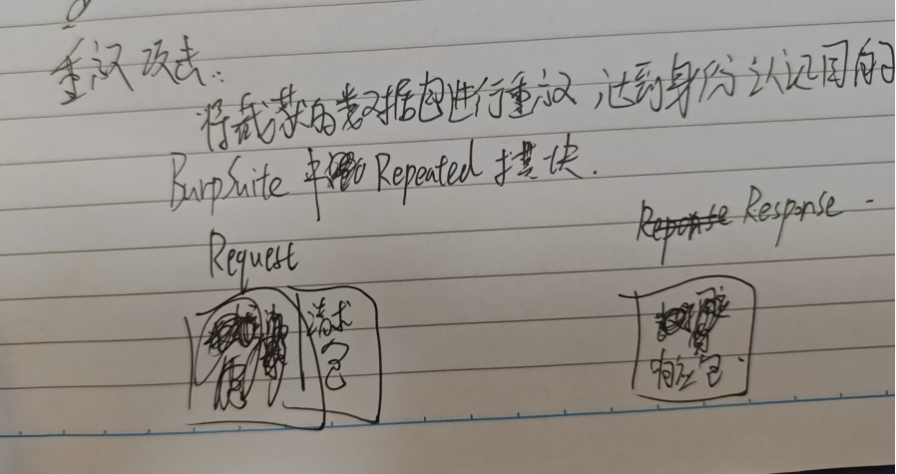 重放攻击:
将截获的数据包进行重放,达到身份认证目的
BurpSuite 中 Repeated 模块.
Response -
Request
请求
包
响应包.